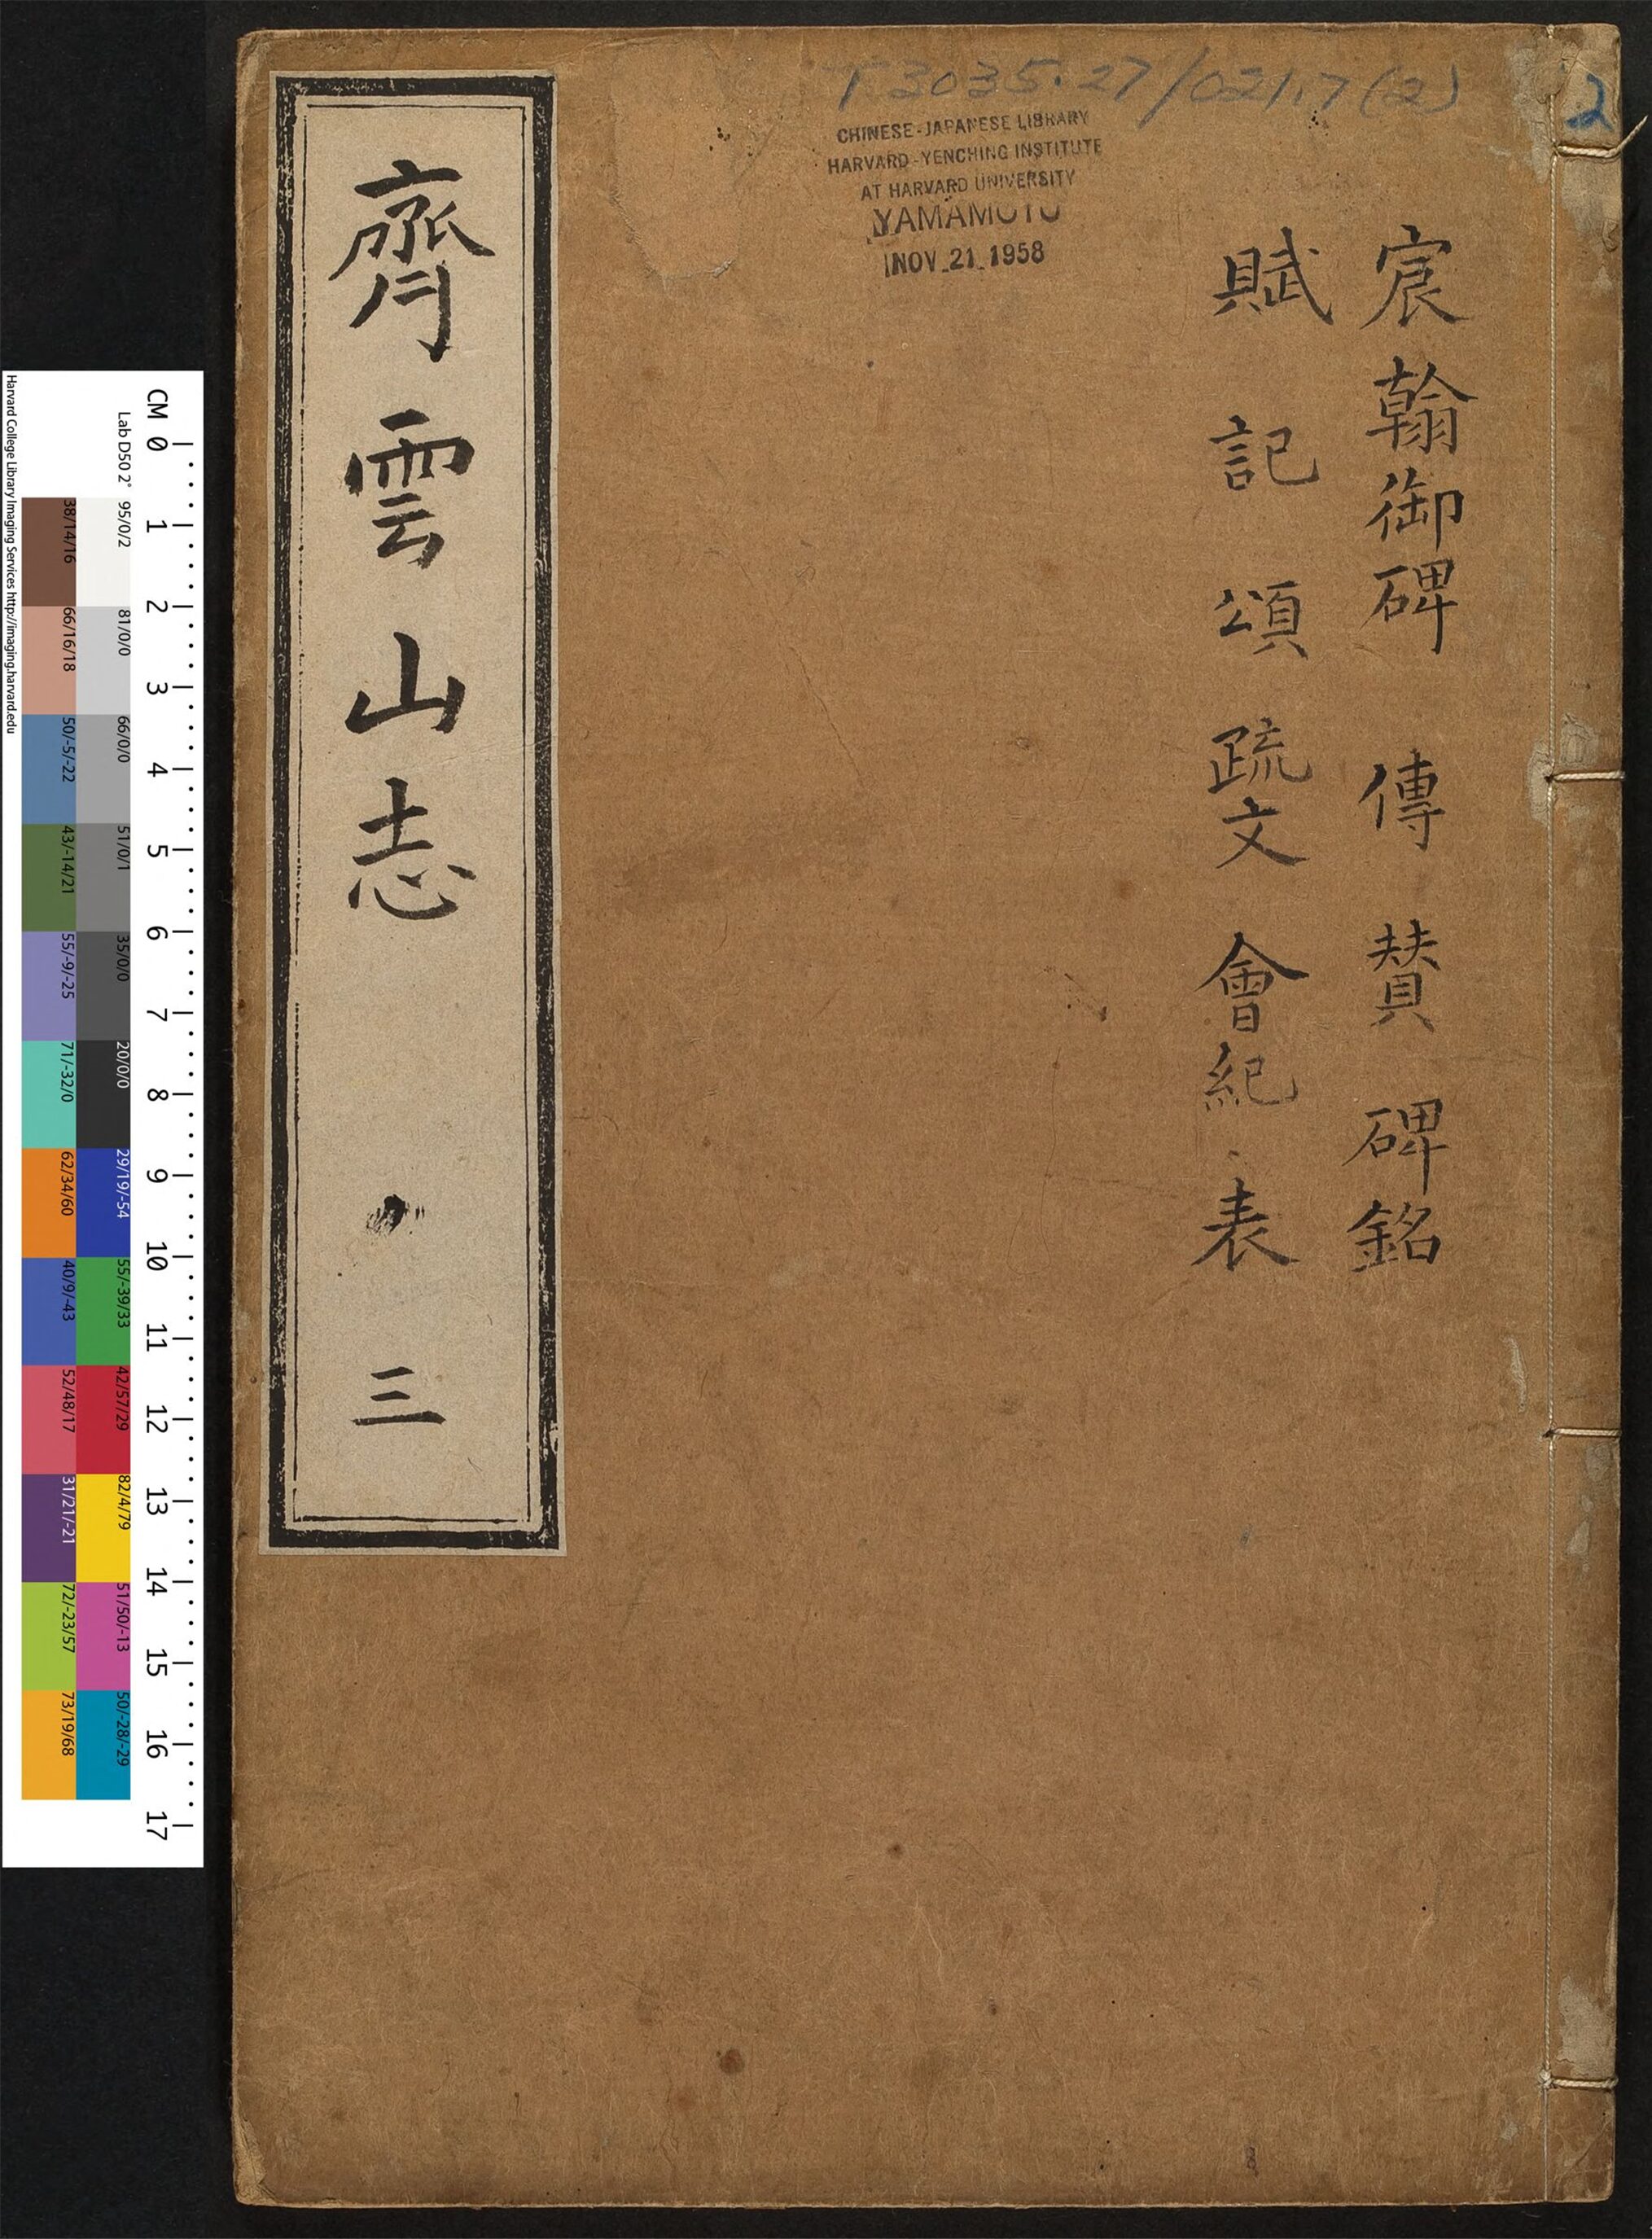 T 3035.27/0217 (2)
2
CHINESE-JAPANESE LIBRARY
HARVARD-YENCHING INSTITUTE
AT HARVARD UNIVERSITY
YAMAMOTO
NOV 21 1958
宸翰御碑 傳 賛 碑銘
賦 記 頌 疏文 會紀 表
齊雲山志 三
CM 0 1 2 3 4 5 6 7 8 9 10 11 12 13 14 15 16 17
Lab D50 2° 95/0/2 81/0/0 66/0/0 51/0/1 35/0/0 20/0/0 29/19/-54 55/-39/33 42/57/29 82/4/79 51/50/-13 50/-28/-29
38/14/16 66/16/18 50/-5/-22 43/-14/21 55/-9/-25 71/-32/0 62/34/60 40/9/-43 52/48/17 31/21/-21 72/-23/57 73/19/68
Harvard College Library Imaging Services http://imaging.harvard.edu